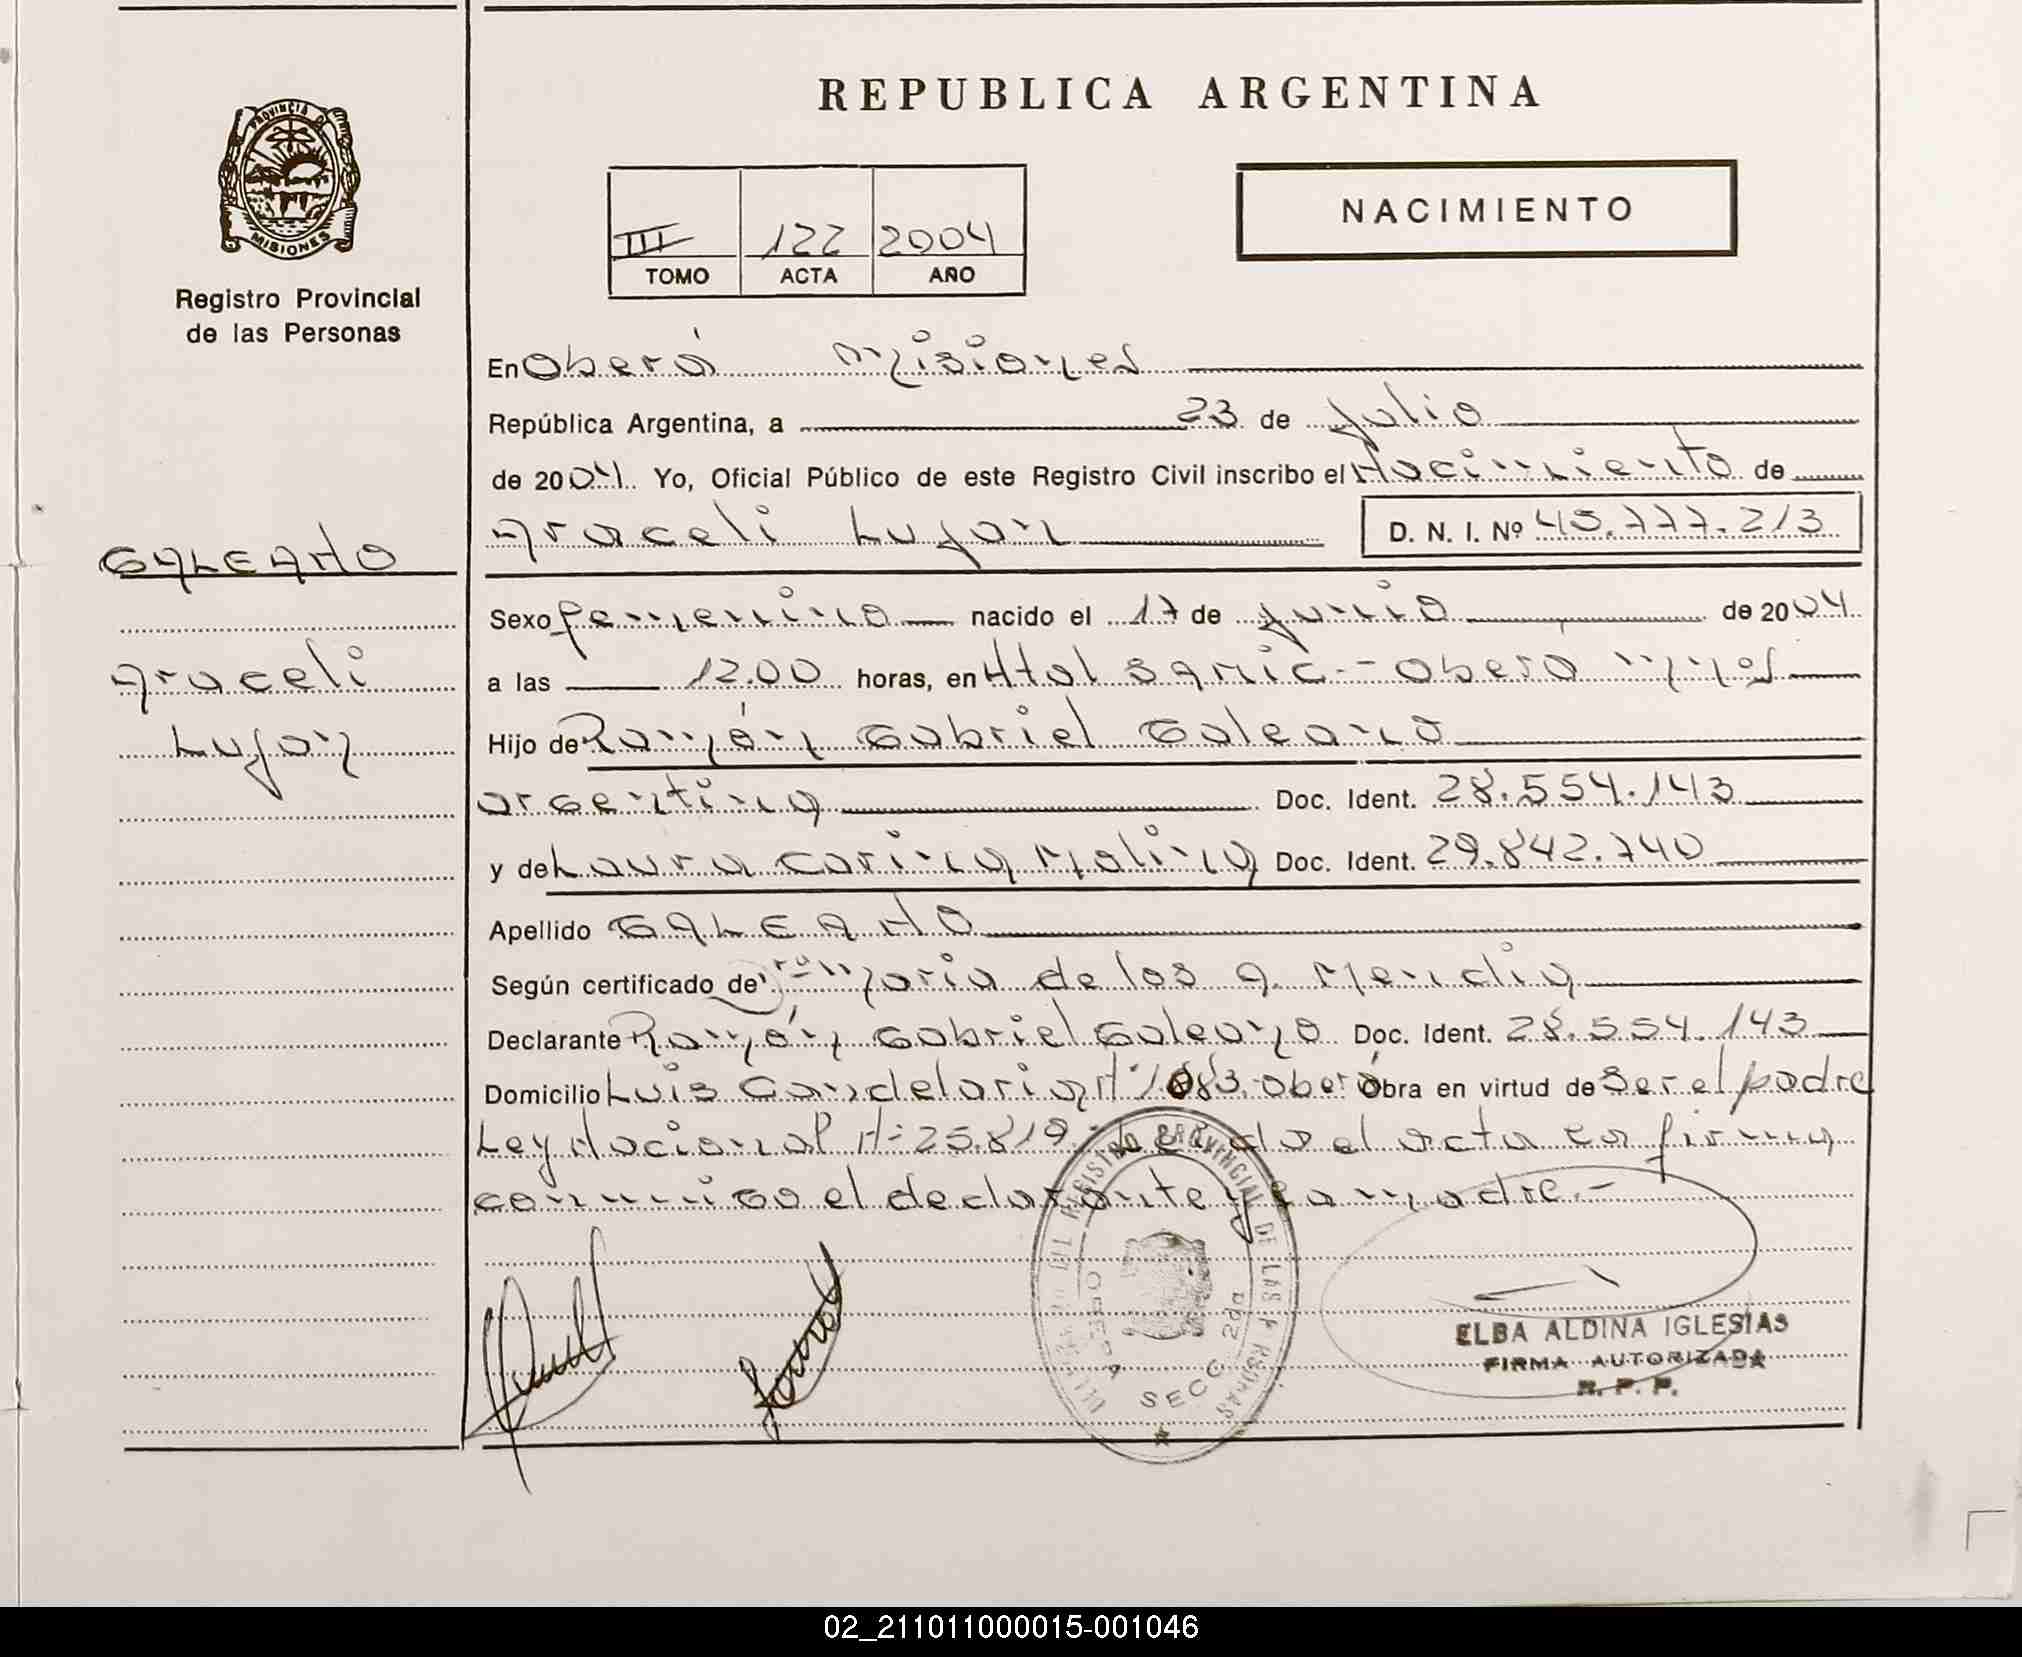 REPUBLICA ARGENTINA
PROVINCIA D
MISIONES
Registro Provincial
de las Personas
III 122 2004
TOMO ACTA AÑO
NACIMIENTO
En Oberá Misiones
República Argentina, a 23 de Julio
de 2004 Yo, Oficial Público de este Registro Civil inscribo el Nacimiento de
Araceli Lujan D. N. I. Nº 45.777.213
GALEANO
Araceli
Lujan
Sexo femenino nacido el 17 de junio de 2004
a las 12.00 horas, en Htal Samic - Oberá Mnes
Hijo de Ramón Gabriel Galeano
argentina Doc. Ident. 28.554.143
y de Laura Carina Molina Doc. Ident. 29.842.740
Apellido GALEANO
Según certificado de Maria de los A. Mendia
Declarante Ramón Gabriel Galeano Doc. Ident. 28.554.143
Domicilio Luis Candelaria Nº 1083-Oberá Obra en virtud de Ser el padre
Ley Nacional Nº 25.819.- Leida el acta la firma
conmigo el declarante y la madre.-
REGISTRO PROVINCIAL DE LAS PERSONAS
OBERA SECC 2da
ELBA ALDINA IGLESIAS
FIRMA AUTORIZADA
R. P. P.
02_211011000015-001046